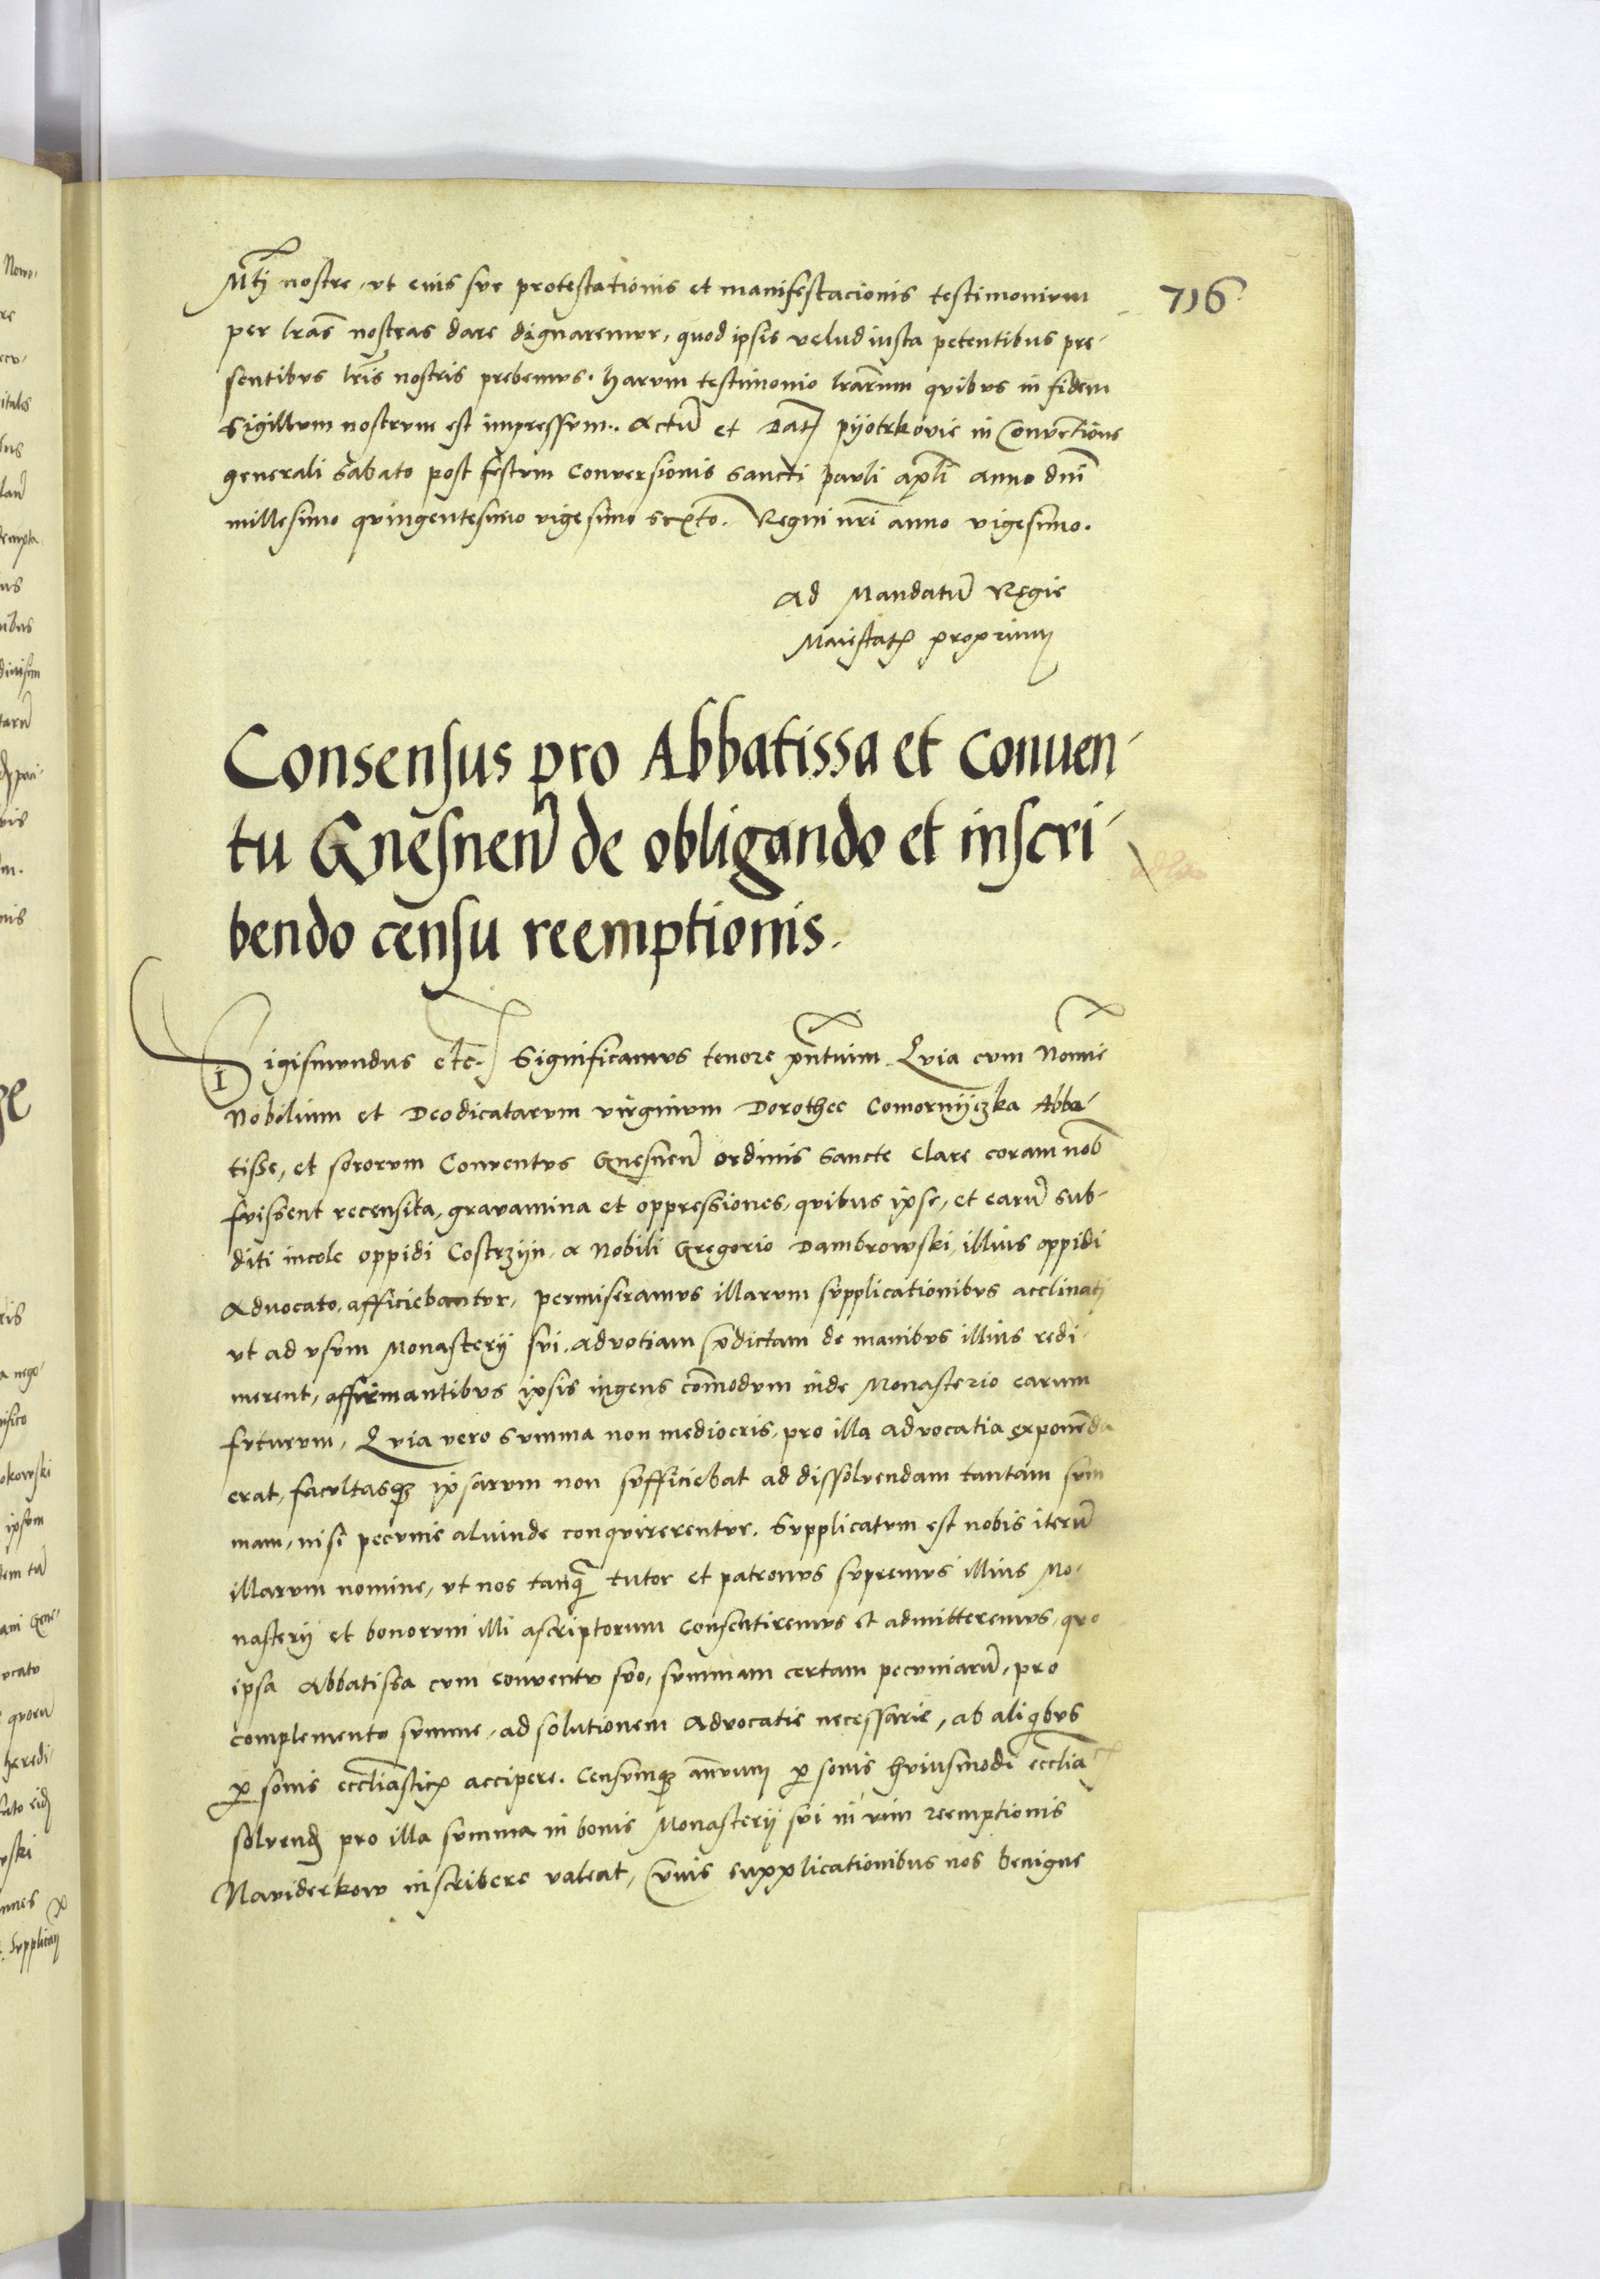 Mti nostre, ut eius sue protestationis et manifestacionis testimonium
716
per lras nostras dare dignaremur, quod ipsis velud iusta petentibus pre-
sentibus lris nostris prebemus. harum testimonio lrarum quibus in fidem
Sigillum nostrum est impressum. Actu et Dat pyotrkovie in Conventione
generali Sabato post festum Conversionis Sancti pauli apli Anno dni
millesimo quingentesimo vigesimo sexto. Regni nri anno vigesimo.
Ad Mandatu Regie
Maiestatis proprium
Consensus pro Abbatissa et Conven-
tu Gnesnen de obligando et inscri-
bendo censu reemptionis.
Sigismundus etc. Significamus tenore pntium. Quia cum Nomie
Nobilium et Deodicatarum virginum Dorothee Comornyczka Abba-
tisse, et sororum Conventus Gnesnen ordinis Sancte Clare coram nob
fuissent recensita, gravamina et oppressiones, quibus ipse, et earu sub-
diti incole oppidi Costrzyn, a Nobili Gregorio Dambrowski, illius oppidi
Advocato, afficiebantur, permiseramus illarum supplicationibus acclinati
ut ad usum Monasterij sui, advotiam pdictam de manibus illius redi-
merent, affirmantibus ipsis ingens comodum inde Monasterio earum
futurum, Quia vero summa non mediocris, pro illa advocatia exponenda
erat, facultasq ipsarum non sufficiebat ad dissolvendam tantam sum
mam, nisi pecunie aluinde conquirerentur. Supplicatum est nobis iteru
illarum nomine, ut nos tanq tutor et patronus supremus illius Mo-
nasterij et bonorum illi ascriptorum consentiremus et admitteremus, quo
ipsa Abbatissa cum conventu suo, summam certam pecuniaru, pro
complemento summe, ad solutionem Advocatie necessarie, ab aliqbus
psonis eccliasticis accipere. Censumq annuum psonis huiusmodi ecclia
solvend pro illa summa in bonis Monasterij sui in vim reemptionis
Naviderkow inscribere valeat, Quis supplicationibus nos benigne